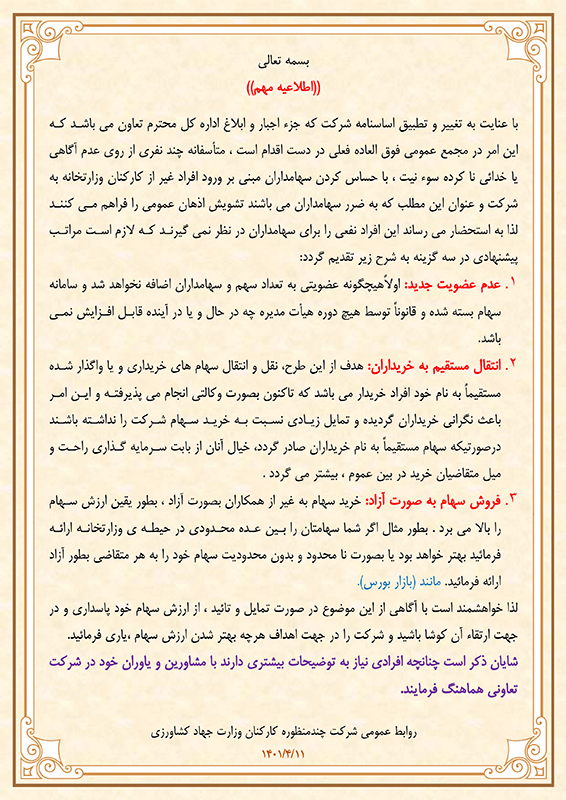 بسمه تعالی
((اطلاعیه مهم))
با عنایت به تغییر و تطبیق اساسنامه شرکت که جزء اجبار و ابلاغ اداره کل محترم تعاون می باشد که
این امر در مجمع عمومی فوق العاده فعلی در دست اقدام است ، متأسفانه چند نفری از روی عدم آگاهی
یا خدائی نا کرده سوء نیت ، با حساس کردن سهامداران مبنی بر ورود افراد غیر از کارکنان وزارتخانه به
شرکت و عنوان این مطلب که به ضرر سهامداران می باشند تشویش اذهان عمومی را فراهم می کنند
لذا به استحضار می رساند این افراد نفعی را برای سهامداران در نظر نمی گیرند که لازم است مراتب
پیشنهادی در سه گزینه به شرح زیر تقدیم گردد:
۱. عدم عضویت جدید: اولاًهیچگونه عضویتی به تعداد سهم و سهامداران اضافه نخواهد شد و سامانه
سهام بسته شده و قانوناً توسط هیچ دوره هیأت مدیره چه در حال و یا در آینده قابل افزایش نمی
باشد.
۲. انتقال مستقیم به خریداران: هدف از این طرح، نقل و انتقال سهام های خریداری و یا واگذار شده
مستقیماً به نام خود افراد خریدار می باشد که تاکنون بصورت وکالتی انجام می پذیرفته و این امر
باعث نگرانی خریداران گردیده و تمایل زیادی نسبت به خرید سهام شرکت را نداشته باشند
درصورتیکه سهام مستقیماً به نام خریداران صادر گردد، خیال آنان از بابت سرمایه گذاری راحت و
میل متقاضیان خرید در بین عموم ، بیشتر می گردد .
۳. فروش سهام به صورت آزاد: خرید سهام به غیر از همکاران بصورت آزاد ، بطور یقین ارزش سهام
را بالا می برد . بطور مثال اگر شما سهامتان را بین عده محدودی در حیطه ی وزارتخانه ارائه
فرمائید بهتر خواهد بود یا بصورت نا محدود و بدون محدودیت سهام خود را به هر متقاضی بطور آزاد
ارائه فرمائید. مانند (بازار بورس).
لذا خواهشمند است با آگاهی از این موضوع در صورت تمایل و تائید ، از ارزش سهام خود پاسداری و در
جهت ارتقاء آن کوشا باشید و شرکت را در جهت اهداف هرچه بهتر شدن ارزش سهام ،یاری فرمائید.
شایان ذکر است چنانچه افرادی نیاز به توضیحات بیشتری دارند با مشاورین و یاوران خود در شرکت
تعاونی هماهنگ فرمایند.
روابط عمومی شرکت چندمنظوره کارکنان وزارت جهاد کشاورزی
۱۴۰۱/۴/۱۱